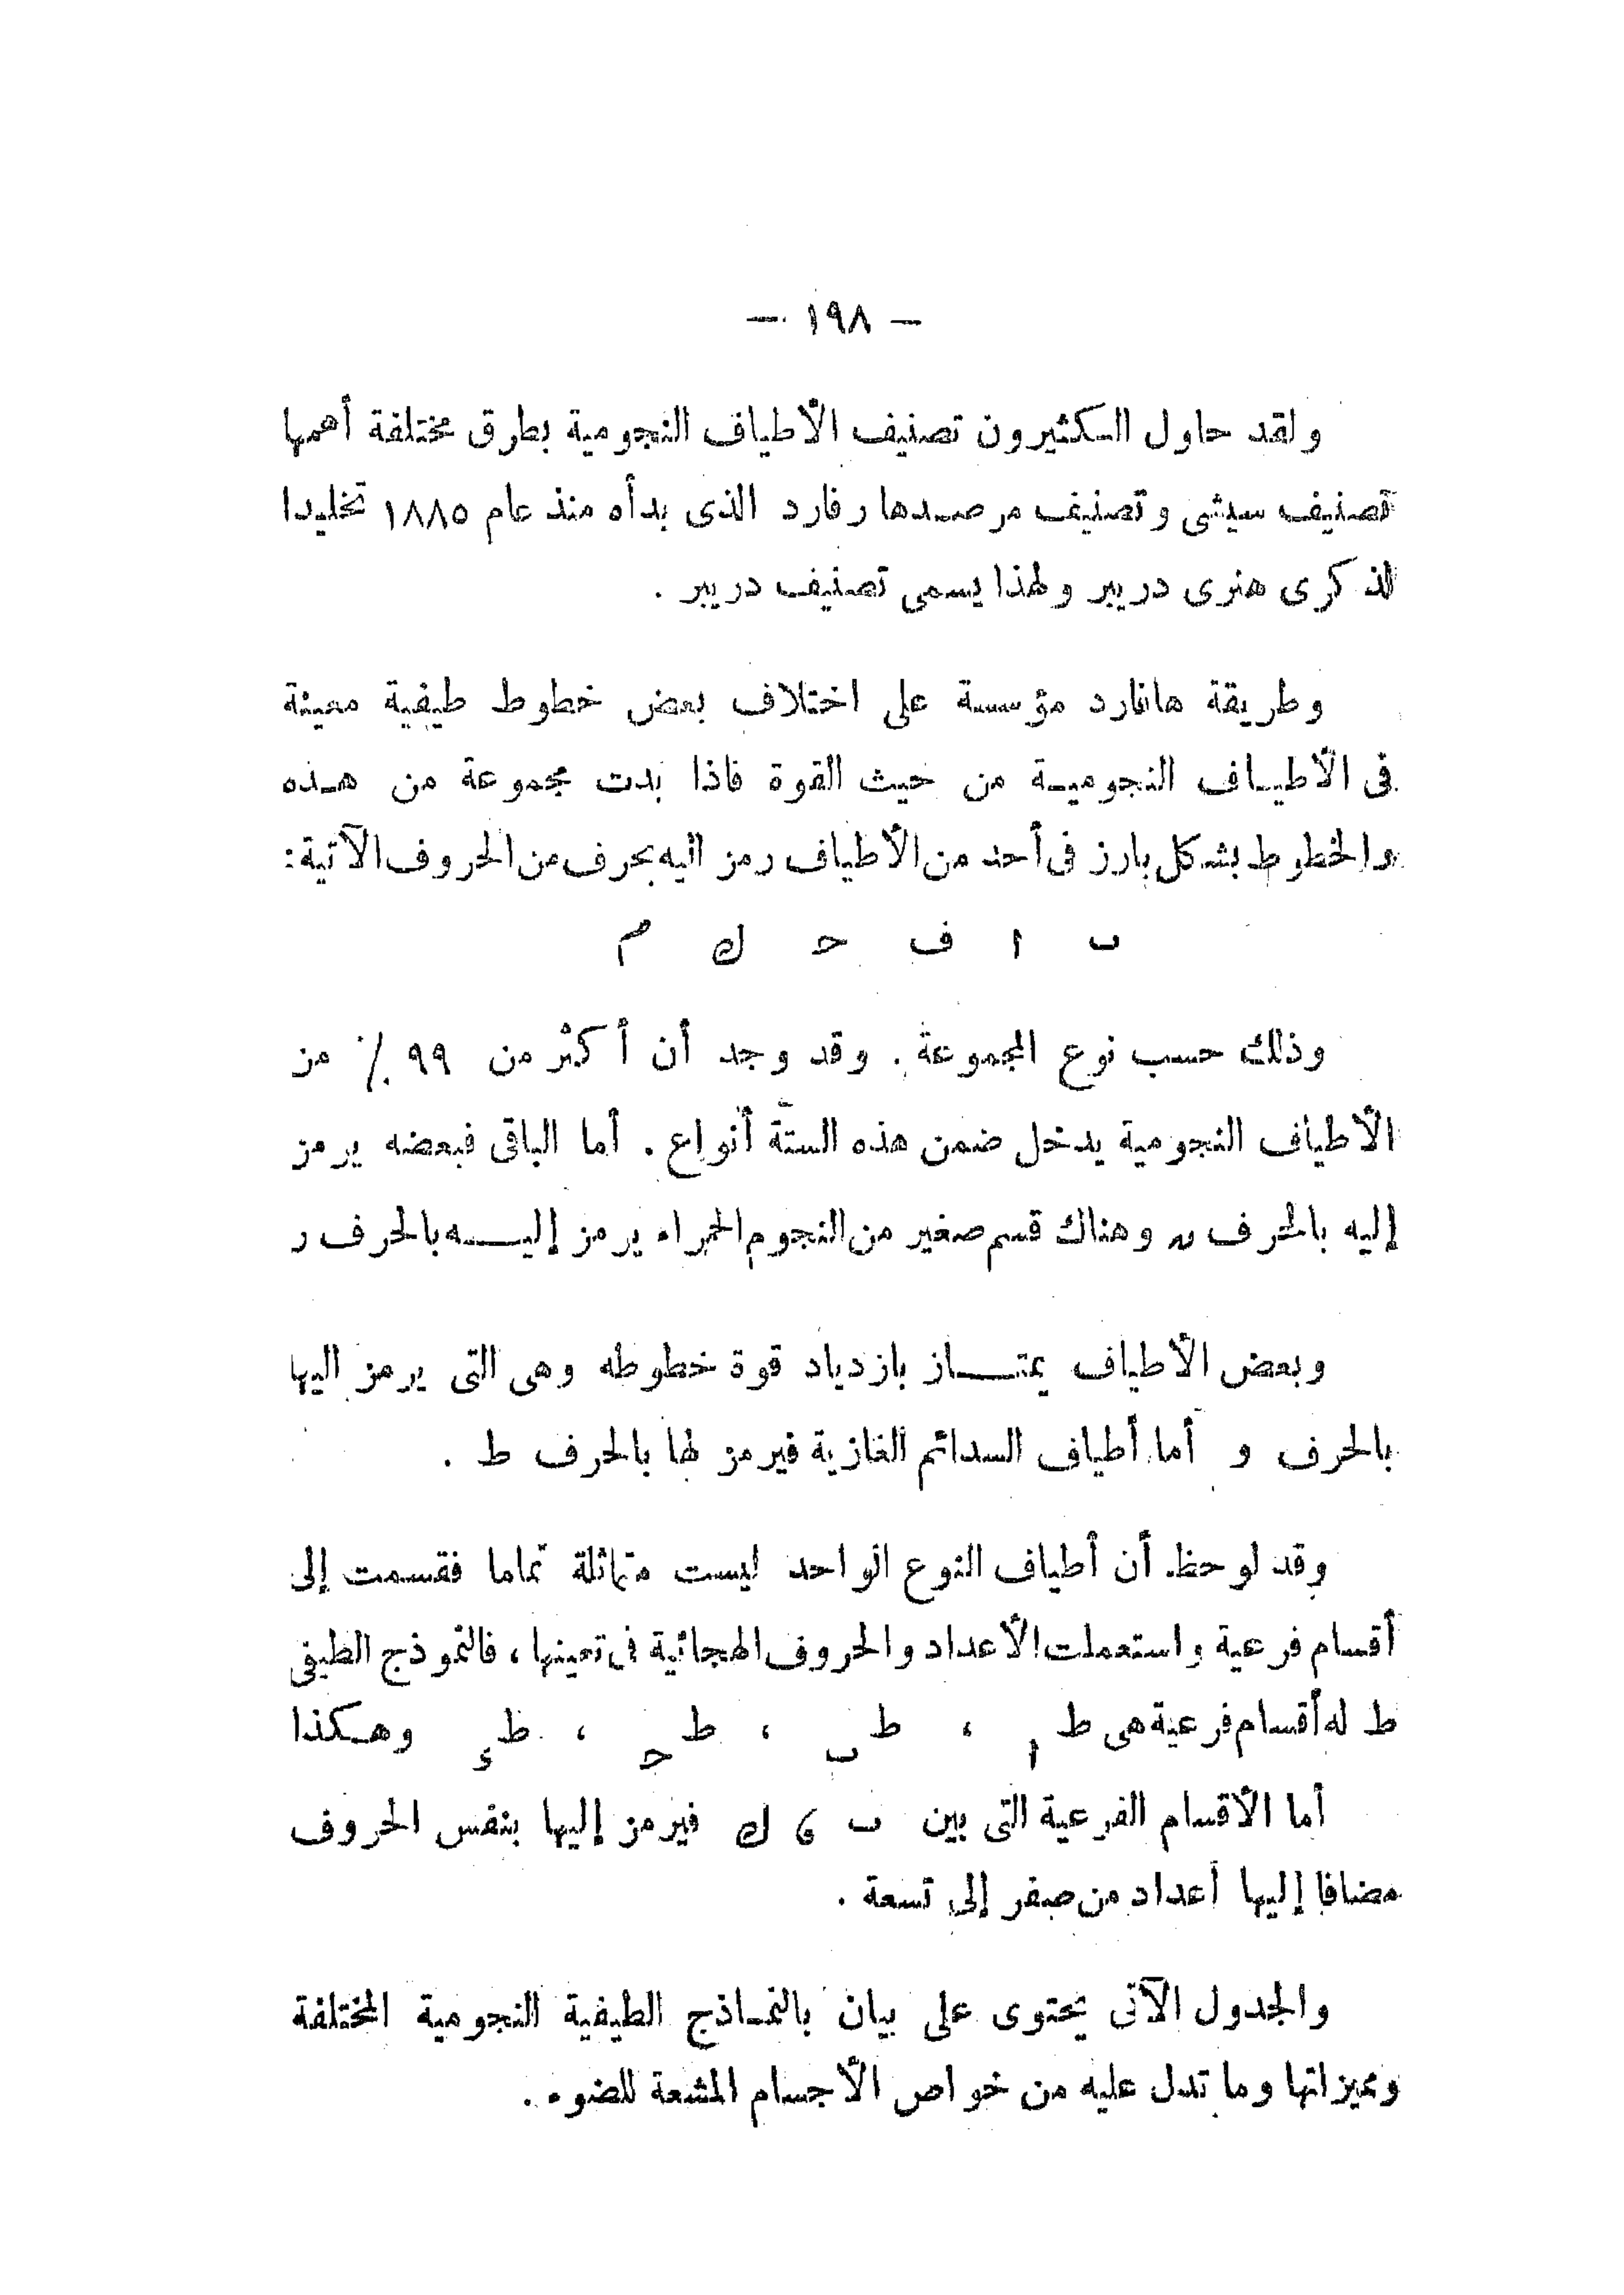 — ١٩٨ —
ولقد حاول الكثيرون تصنيف الأطياف النجومية بطرق مختلفة أهمها
تصنيف سيشى وتصنيف مرصد هارفارد الذى بدأه منذ عام ١٨٨٥ تخليدا
لذكرى هنرى دريبر ولهذا يسمى تصنيف دريبر .
وطريقة هافارد مؤسسة على اختلاف بعض خطوط طيفية معينة
فى الأطياف النجومية من حيث القوة فاذا بدت مجموعة من هذه
والخطوط بشكل بارز فى أحد من الأطياف رمز اليه بحرف من الحروف الآتية :
ب ا ف ح ك م
وذلك حسب نوع المجموعة . وقد وجد أن أكثر من ٩٩ ٪ من
الأطياف النجومية يدخل ضمن هذه الستة أنواع . أما الباقى فبعضه يرمز
إليه بالحرف ں وهناك قسم صغير من النجوم الحمراء يرمز إليه بالحرف ر
وبعض الأطياف يمتاز بازدياد قوة خطوطه وهى التى يرمز اليها
بالحرف و أما أطياف السدائم الغازية فيرمز لها بالحرف ط .
وقد لوحظ أن أطياف النوع الواحد ليست متماثلة تماما فقسمت إلى
أقسام فرعية واستعملت الأعداد والحروف الهجائية فى تعيينها ، فالنموذج الطيفى
ط له أقسام فرعية هى ط ا ، ط ب ، ط ح ، ط ء وهكذا
أما الأقسام الفرعية التى بين ب ، ك فيرمز إليها بنفس الحروف
مضافا إليها أعداد من صفر إلى تسعة .
والجدول الآتى يحتوى على بيان بالنماذج الطيفية النجومية المختلفة
ومميزاتها وما تدل عليه من خواص الأجسام المشعة للضوء .